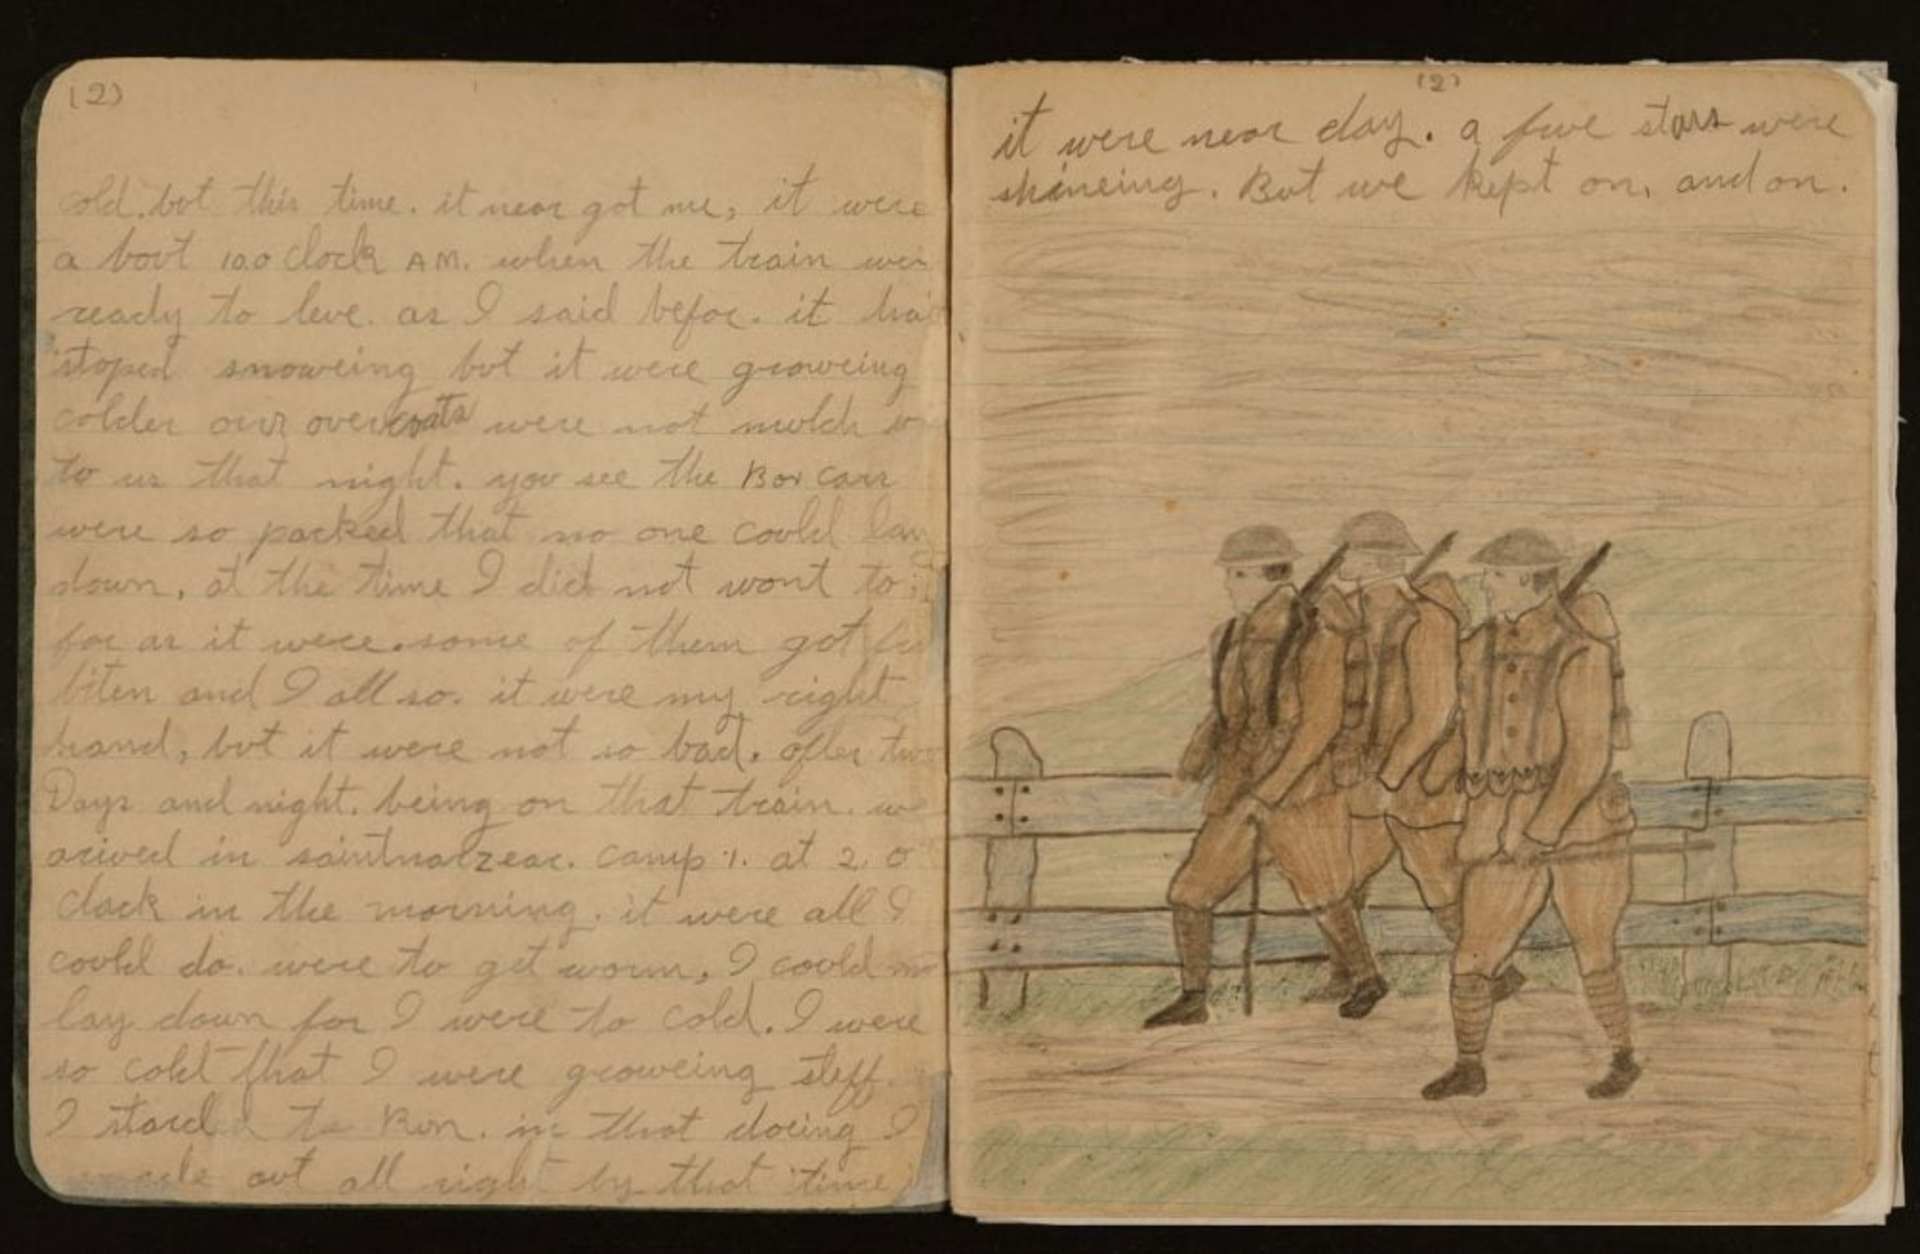 (2)
cold. bot this time. it near got me, it were
a bout 10.0 clock AM. when the train
ready to leve. as I said befor. it
stoped snoweing but it were groweing
colder our overcoats were not mulch
to us that night. you see the Box cars
were so packed that no one could lay
down, at the time I did not wont to
for as it were. some of them got
biten and I all so. it were my right
hand, but it were not so bad. after two
Days and night. being on that train. we
arived in saintnarzear. Camp 1. at 2. 0
clock in the morning. it were all I
could do. were to get worm, I could
lay down for I were to cold. I were
so cold that I were groweing steff.
I to Run. in that doeing I
out all right by that time
(2)
it were near day. a fwe stars were
shineing. But we kept on, and on.